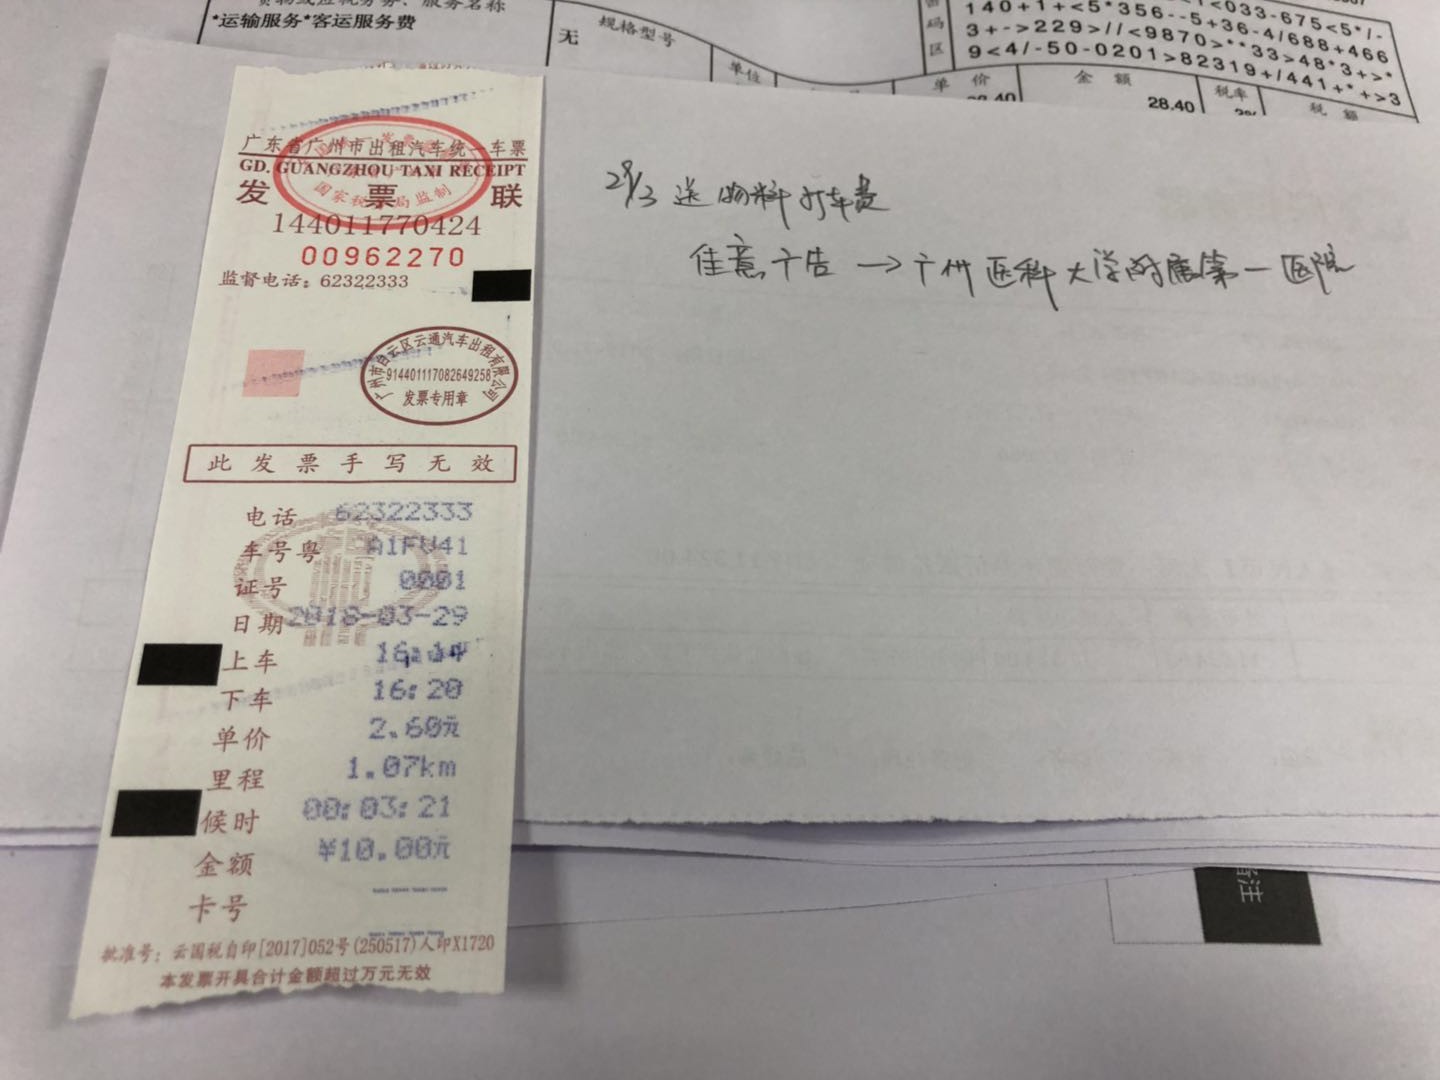 货物或应税劳务、服务名称
*运输服务*客运服务费
规格型号
无
单位
码
区
140+1+<5*356--5+36-4/688+466
3+->229>//<9870>**33>48*3+>*
9<4/-50-0201>82319+/441+*+>3
单价
金额
28.40
税率
税额
广东省广州市出租汽车统一车票
GD. GUANGZHOU TAXI RECEIPT
发票联
国家税务局监制
144011770424
00962270
监督电话：62322333
广州市白云区云通汽车出租有限公司
914401117082649258
发票专用章
此发票手写无效
电话 62322333
车号粤 A1FU41
证号 0001
日期 2018-03-29
上车 16:14
下车 16:20
单价 2.60元
里程 1.07km
候时 00:03:21
金额 ¥10.00元
卡号
批准号：云国税自印[2017]052号(250517)人印X1720
本发票开具合计金额超过万元无效
29/3 送物料打车费
佳意广告→广州医科大学附属第一医院